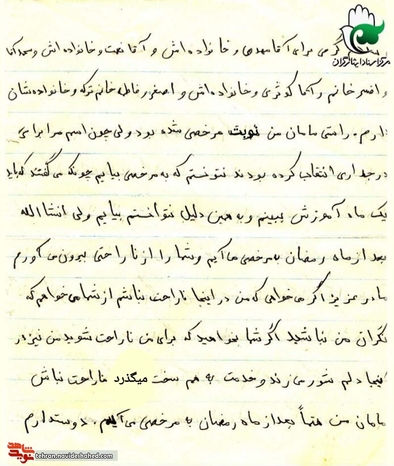 گرمی برای آقا مهدی و خانواده اش و آقا نعمت و خانواده اش و سعید آقا
و افسر خانم و آقا کوثری و خانواده اش و اصغر و فاطی خانم ترکه و خانواده شان
دارم. راستی مامان من نوبت مرخصی شده بود ولی چون اسم مرا برای
درجداری انتخاب کرده بودند نتونستم که به مرخصی بیایم چونکه می گفتند که باید
یک ماه آموزش ببینم و به همین دلیل نتوانستم بیایم ولی انشا الله
بعد از ماه رمضان به مرخصی می آیم و شما را از ناراحتی بیرون می آورم
مادر عزیز اگر می خواهی که من در اینجا ناراحت نباشم از شما می خواهم که
نگران من نباشید اگر شما بخواهید که برای من ناراحت شوید من نیز در
اینجا دلم شور می زند و خدمت به هم سخت میگذرد ناراحت نباش
مامان من حتماً بعد از ماه رمضان به مرخصی می آیم. دوستدارم
مرکز اسناد ایثارگران
نوید شاهد
tehran.navideshahed.com